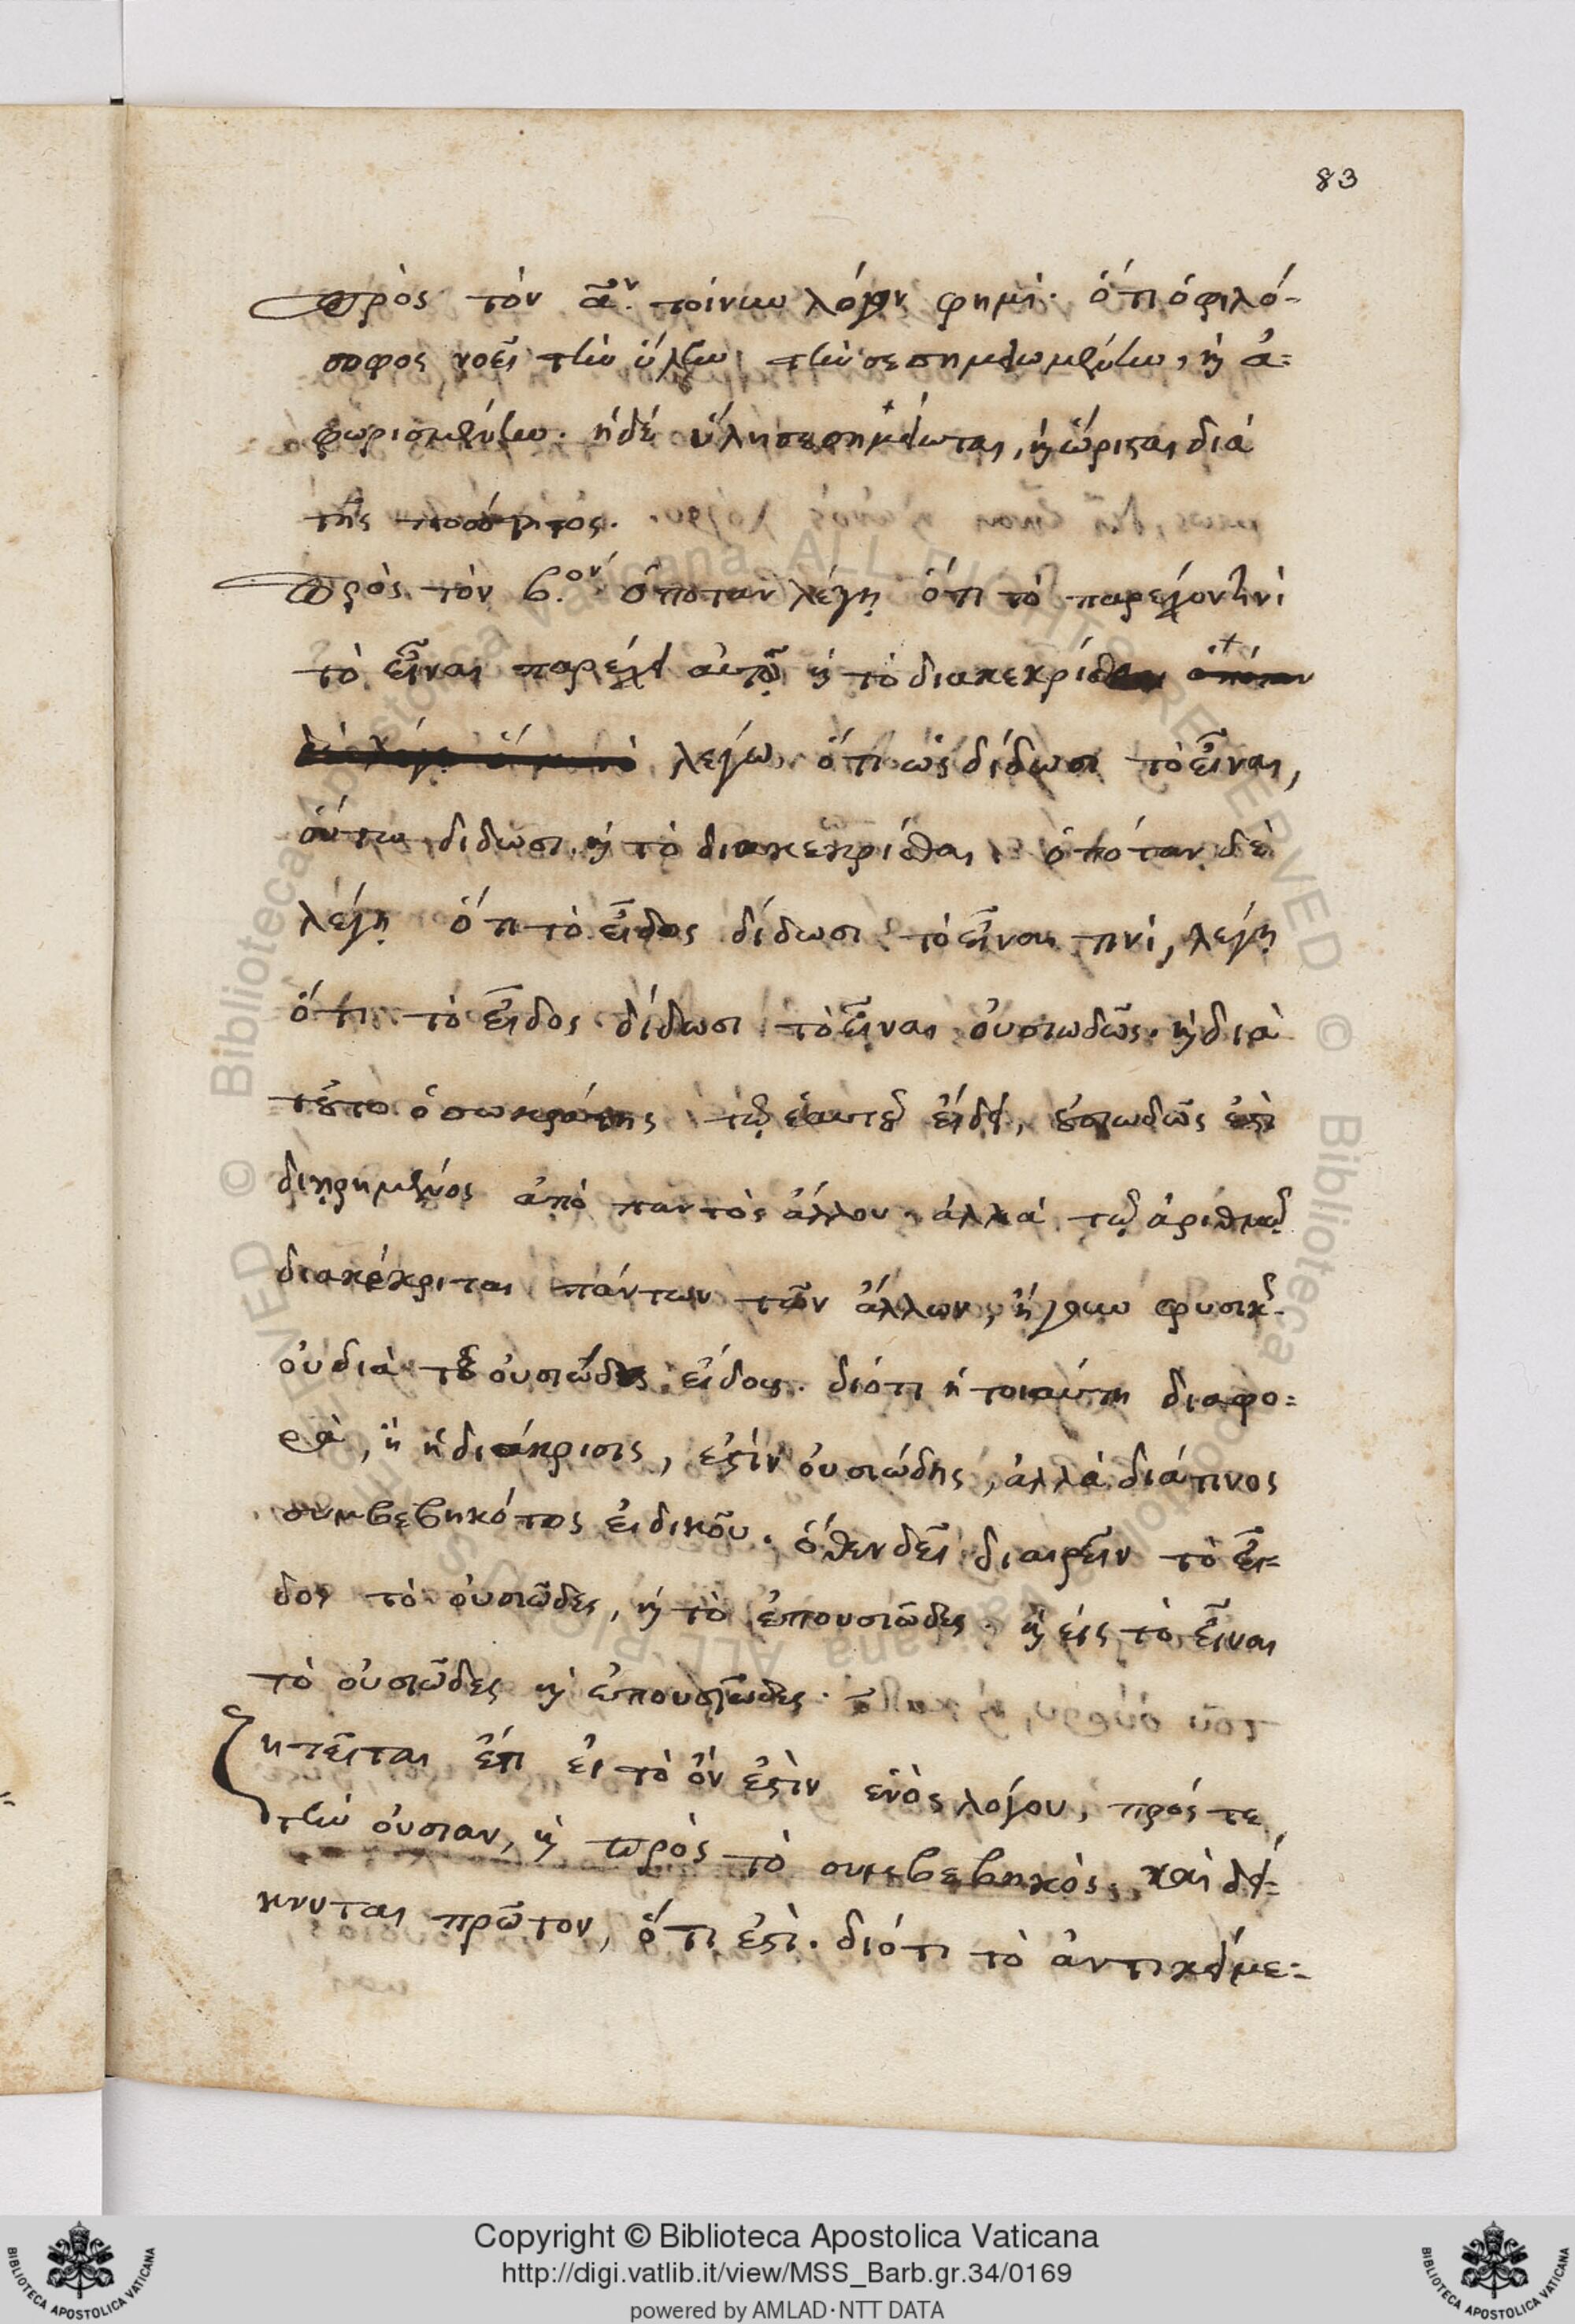 83
Πρὸς τὸν α.ον τοίνυν λόγον φημί· ὅτι ὁ φιλό-
σοφος νοεῖ τὴν ὕλην τὴν σεσημειωμένην, καὶ ἀ-
φωρισμένην· ἡ δὲ ὕλη σεσημείωται, καὶ ὥρισται διὰ
τῆς ποσότητος.
Πρὸς τὸν β.ον ὁπόταν λέγῃ ὅτι τὸ παρέχον τινὶ
τὸ εἶναι παρέχει αὐτῷ καὶ τὸ διακεκρίσθαι
λέγω ὅτι ὡς δίδωσι τὸ εἶναι,
οὕτω δίδωσι καὶ τὸ διακεκρίσθαι· ὁπόταν δὲ
λέγῃ ὅτι τὸ εἶδος δίδωσι τὸ εἶναι τινὶ, λέγῃ
ὅτι τὸ εἶδος δίδωσι τὸ εἶναι οὐσιωδῶς· καὶ διὰ
τοῦτο ὁ σωκράτης τῷ ἑαυτοῦ εἴδει, οὐσιωδῶς ἐστὶ
διῃρημένος ἀπὸ παντὸς ἄλλου· ἀλλὰ τῷ ἀριθμῷ
διακέκριται πάντων τῶν ἄλλων, ἤγουν φυσικῶς
οὐ διὰ τοῦ οὐσιώδους εἴδους· διότι ἡ τοιαύτη διαφο-
ρὰ, ἢ ἡ διάκρισις, ἐστὶν οὐσιώδης, ἀλλὰ διά τινος
συμβεβηκότος εἰδικοῦ· ὅθεν δεῖ διαιρεῖν τὸ εἶ-
δος τὸ οὐσιῶδες, καὶ τὸ ἐπουσιῶδες· καὶ εἰς τὸ εἶναι
τὸ οὐσιῶδες καὶ ἐπουσιῶδες·
Ζητεῖται ἔτι εἰ τὸ ὄν ἐστὶν ἑνὸς λόγου, πρός τε
τὴν οὐσίαν, καὶ πρὸς τὸ συμβεβηκὸς· καὶ δεί-
κνυται πρῶτον, ὅτι ἐστί· διότι τὸ ἀντικείμε-
© Biblioteca Apostolica Vaticana ALL RIGHTS RESERVED
Copyright © Biblioteca Apostolica Vaticana
http://digi.vatlib.it/view/MSS_Barb.gr.34/0169
powered by AMLAD·NTT DATA
BIBLIOTECA APOSTOLICA VATICANA
BIBLIOTECA APOSTOLICA VATICANA